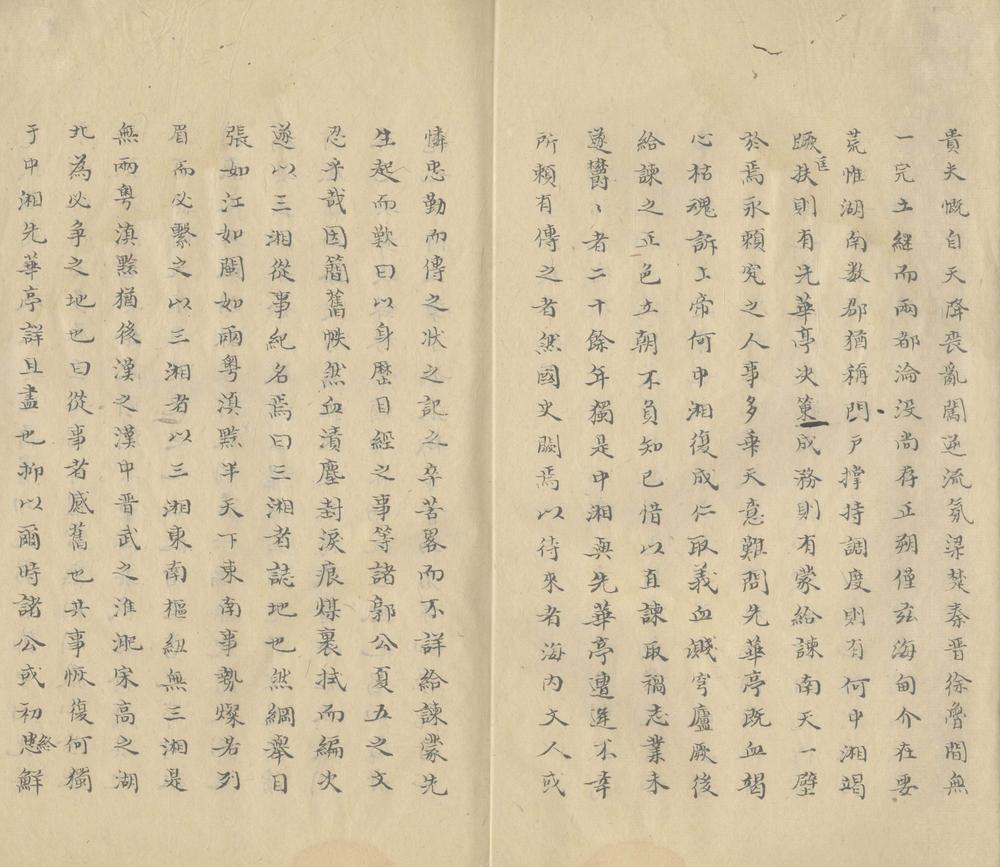 貴夫慨自天降喪亂闖逆流氛梁楚秦晉徐魯間無
一完土繼而兩都淪没尚存正朔僅玆海甸介在要
荒惟湖南数郡猶稱門戶撑持調度則有何中湘竭
蹶匡扶則有先華亭决策成務則有蒙給諫南天一壁
於焉永頼究之人事多乖天意難問先華亭既血竭
心枯魂訴上帝何中湘復成仁取義血濺穹廬厥後
給諫之正色立朝不負知已惜以直諫取禍志業未
遂欝〻者二十餘年獨是中湘與先華亭遭逢不幸
所頼有傳之者然國史闕焉以待來者海内文人或
憐忠勤而傳之状之記之卒苦畧而不詳給諫蒙先
生起而歎曰以身歷目經之事等諸郭公夏五之文
忍乎哉因簡舊帙然血漬塵封淚痕煤裏拭而編次
遂以三湘從事紀名焉曰三湘者誌地也然綱舉目
張如江如閩如兩粤滇黔半天下東南事勢燦若列
眉而必繫之以三湘者以三湘東南樞紐無三湘是
無兩粤滇黔猶後漢之漢中晋武之淮淝宋高之湖
北為必争之地也曰從事者感舊也共事恢復何獨
于中湘先華亭詳且盡也抑以爾時諸公或初終鮮